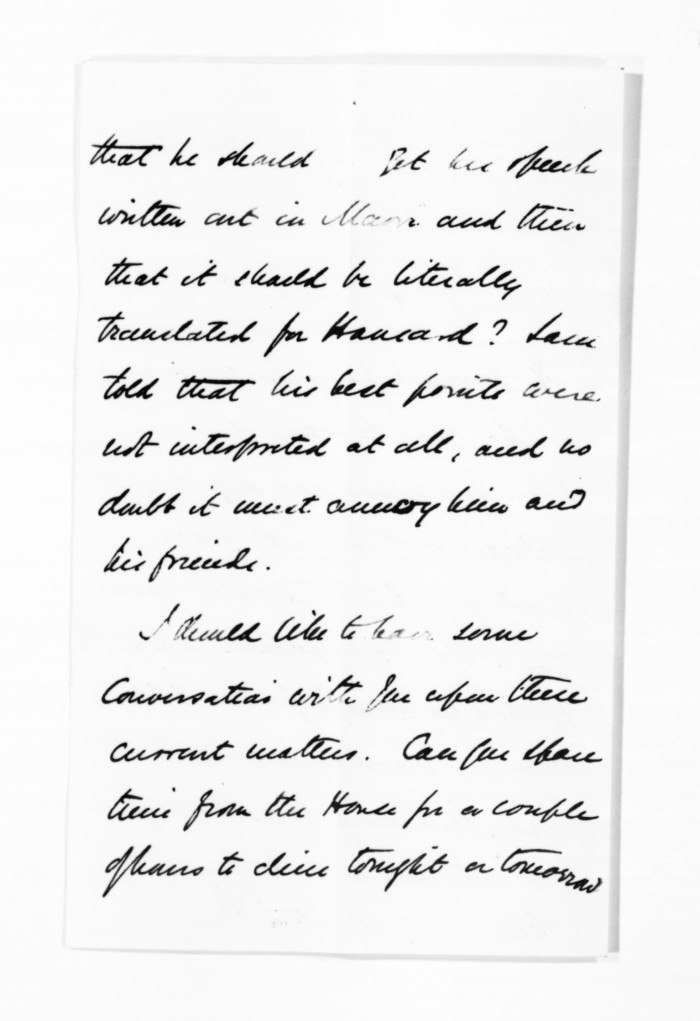 that he should get his speech
written out in Maori and then
that it should be literally
translated for Hansard? I am
told that his best points were
not interpreted at all, and no
doubt it must annoy him and
his friends.
I should like to have some
Conversation with you upon these
current matters. Can you spare
time from the House for a couple
of hours to dine tonight or tomorrow